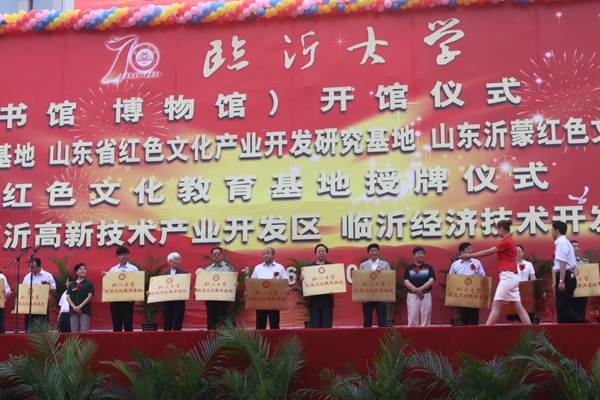 70
临沂大学
书馆 博物馆）开馆仪式
基地 山东省红色文化产业开发研究基地 山东沂蒙红色文
红色文化教育基地授牌仪式
沂高新技术产业开发区 临沂经济技术开发